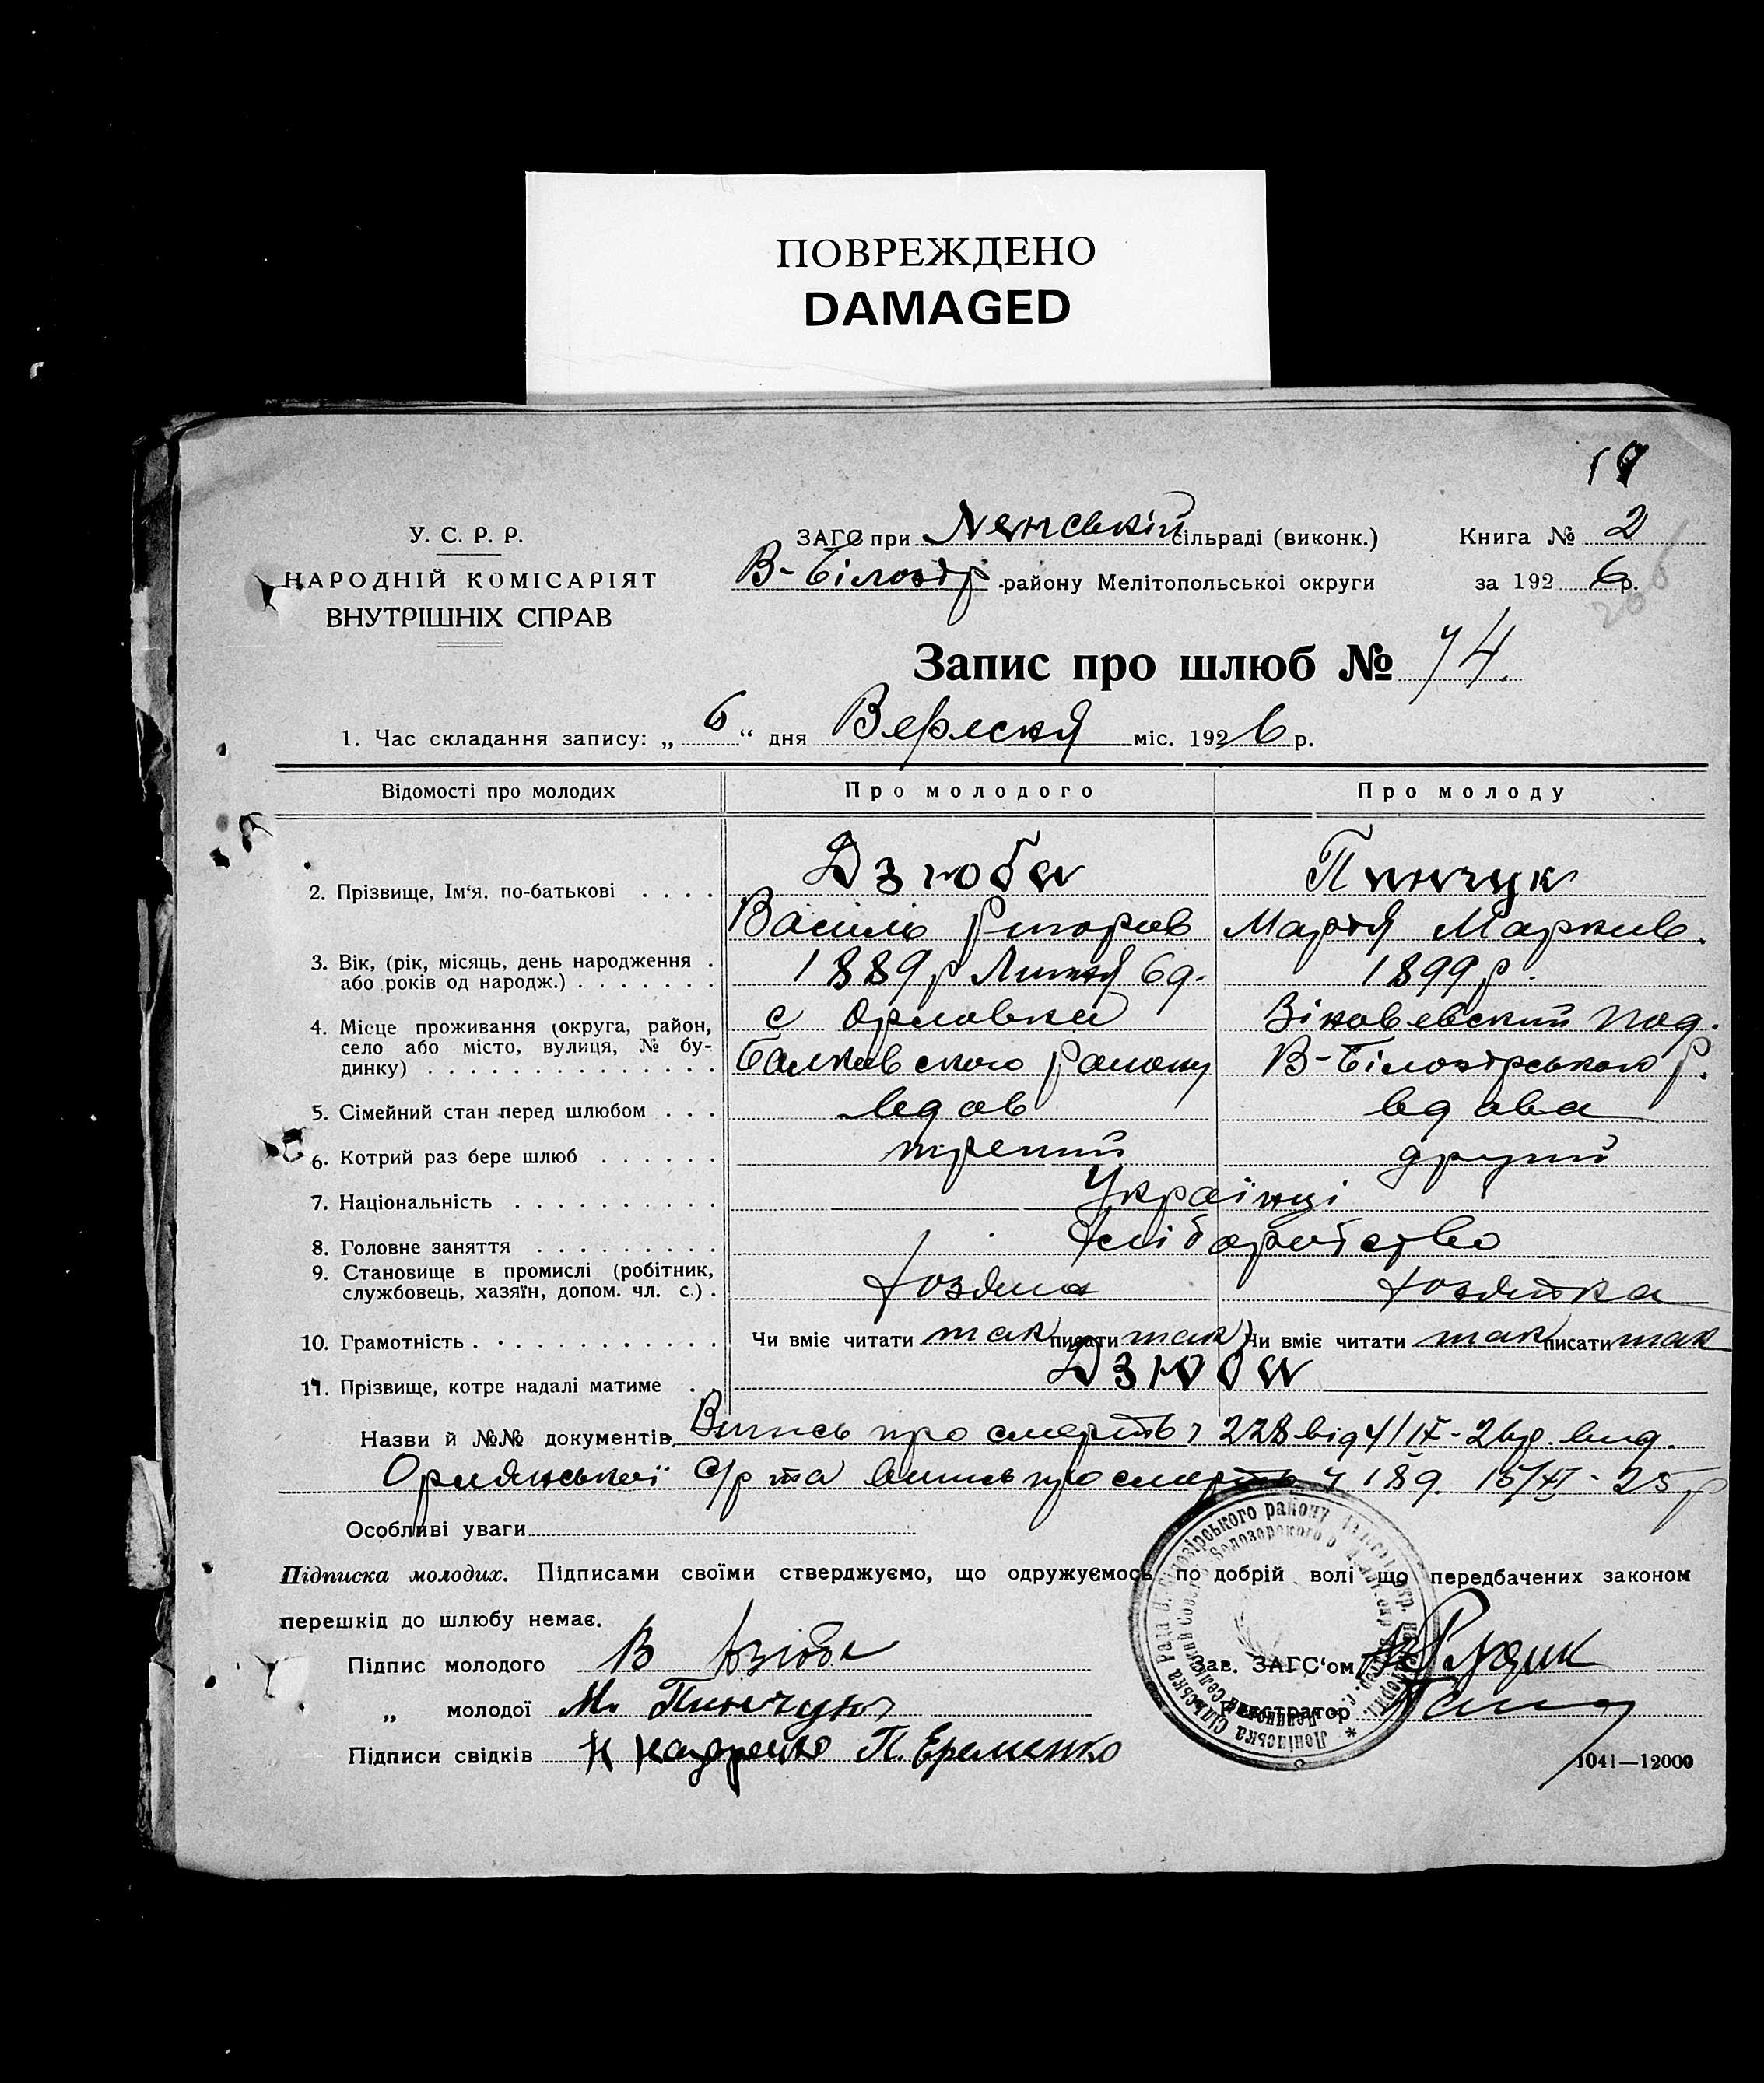 ПОВРЕЖДЕНО
DAMAGED
У. С. Р. Р.
НАРОДНІЙ КОМІСАРІЯТ
ВНУТРІШНІХ СПРАВ
ЗАГС при сільраді (виконк.) Книга № 2
В-Білозір району Мелітопольської округи за 1926 р.
Запис про шлюб № 74.
1. Час складання запису: „ 6 “ дня Вересня міс. 1926 р.
Відомості про молодих Про молодого Про молоду
2. Прізвище, Ім‘я, по-батькові . . . . Дзюба Пинчук
Василь Григорів Марія Марків.
3. Вік, (рік, місяць, день народження . 1889 р Липня 6 д. 1899 р.
або років од народж.) . . . . . . .
4. Місце проживання (округа, район, с Орловка под.
село або місто, вулиця, № бу-
динку) . . . . . . . . . . . . . . . району В-Білозірського р.
5. Сімейний стан перед шлюбом . . . вдов вдова
6. Котрий раз бере шлюб . . . . . . третий другий
7. Національність . . . . . . . . . . Українці
8. Головне заняття . . . . . . . . . Хліборобство
9. Становище в промислі (робітник,
службовець, хазяїн, допом. чл. с.) . хозяин хозяйка
10. Грамотність . . . . . . . . . . . Чи вміє читати так писати так Чи вміє читати так писати так
11. Прізвище, котре надалі матиме . . Дзюба
Назви й №№ документів Випись про смерть 228 від 4/IX-26 р. вид.
с/р та випись про смерть ч 189 15/XI-25 р
Особливі уваги
Підписка молодих. Підписами своїми стверджуємо, що одружуємось по добрій волі що передбачених законом
перешкід до шлюбу немає.
Підпис молодого В Дзюба
„ молодої М. Пинчук
Підписи свідків Н Назаренко П. Еременко
Зав. ЗАГС‘ом
Реєстратор
1041—12000